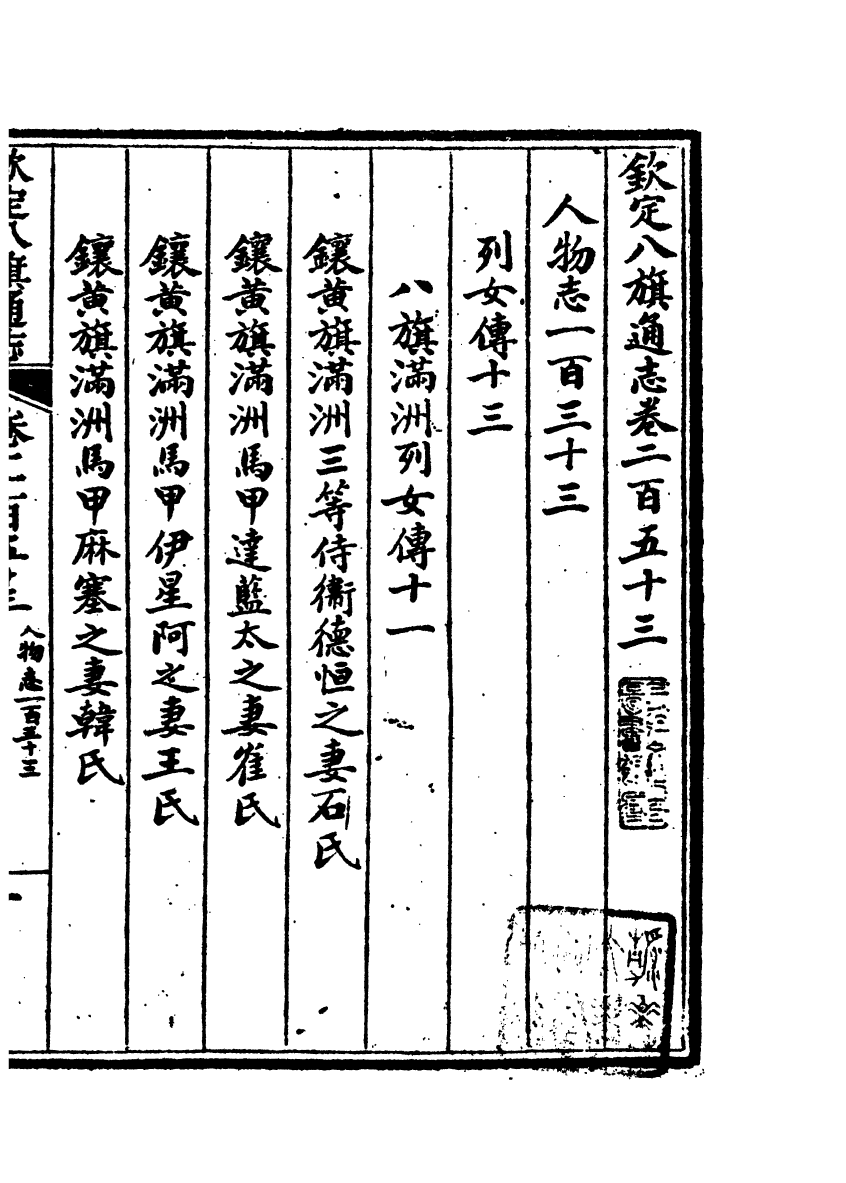 欽定八旗通志卷二百五十三
人物志一百三十三
列女傳十三
八旗滿洲列女傳十一
鑲黄旗滿洲三等侍衞德恒之妻石氏
鑲黄旗滿洲馬甲達藍太之妻崔氏
鑲黄旗滿洲馬甲伊星阿之妻王氏
鑲黄旗滿洲馬甲麻塞之妻韓氏
欽定八旗通志
卷二百五十三
人物志一百三十三
一